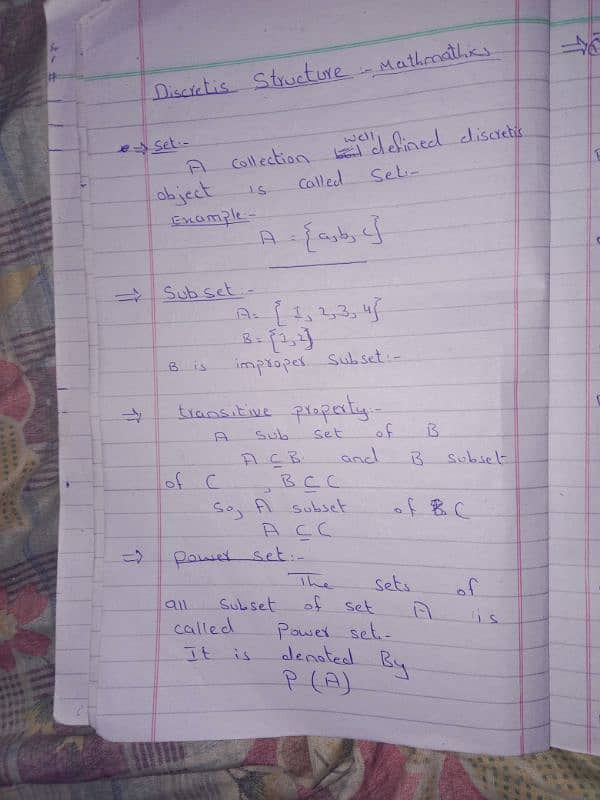 Discretis Structure :- Mathmathics
⇒ Set:-
A collection well defined discretis
object is called Set:-
Example:-
A = {a,b,c}
⇒ Subset:-
A= {1,2,3,4}
B= {1,2}
B is improper Subset:-
⇒ transitive property:-
A sub set of B
A ⊆ B and B subset
of C, B ⊆ C
So, A subset of C
A ⊆ C
⇒ Power set:-
The sets of
all subset of set A is
called Power set.-
It is denoted By
P(A)